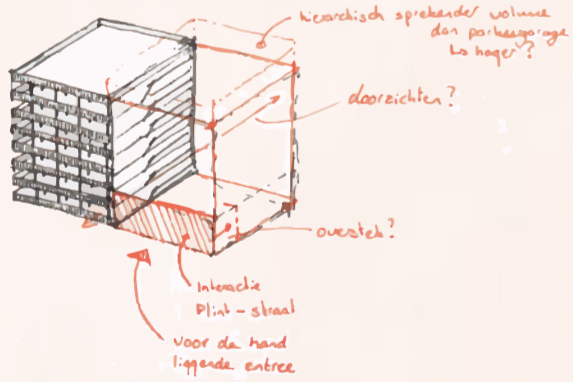 hierarchisch sprekender volume
dan parkeergarage
↳ hoger?
doorzichten?
overstek?
Interactie
Plint - straat
voor de hand
liggende entree